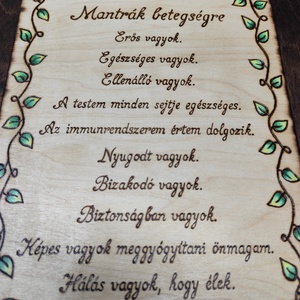 Mantrák betegségre
Erős vagyok.
Egészséges vagyok.
Ellenálló vagyok.
A testem minden sejtje egészséges.
Az immunrendszerem értem dolgozik.
Nyugodt vagyok.
Bizakodó vagyok.
Biztonságban vagyok.
Képes vagyok meggyógyítani önmagam.
Hálás vagyok, hogy élek.